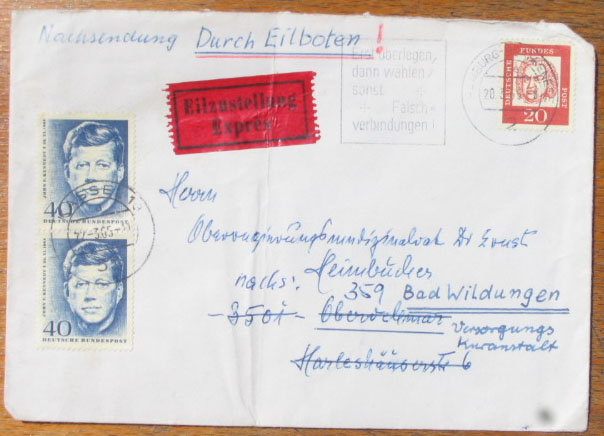 Nachsendung Durch Eilboten!
Erst überlegen,
dann wählen
sonst
Falsch-
verbindungen!
DEUTSCHE BUNDES POST
20
Eilzustellung
Exprès
JOHN F. KENNEDY
40
DEUTSCHE BUNDESPOST
JOHN F. KENNEDY
40
DEUTSCHE BUNDESPOST
Herrn
Oberregierungsmedizinalrat Dr Ernst
Heimbücher
nachs: 359 Bad Wildungen
3501
Versorgungs
Kuranstalt
Harleshäuserstr 6